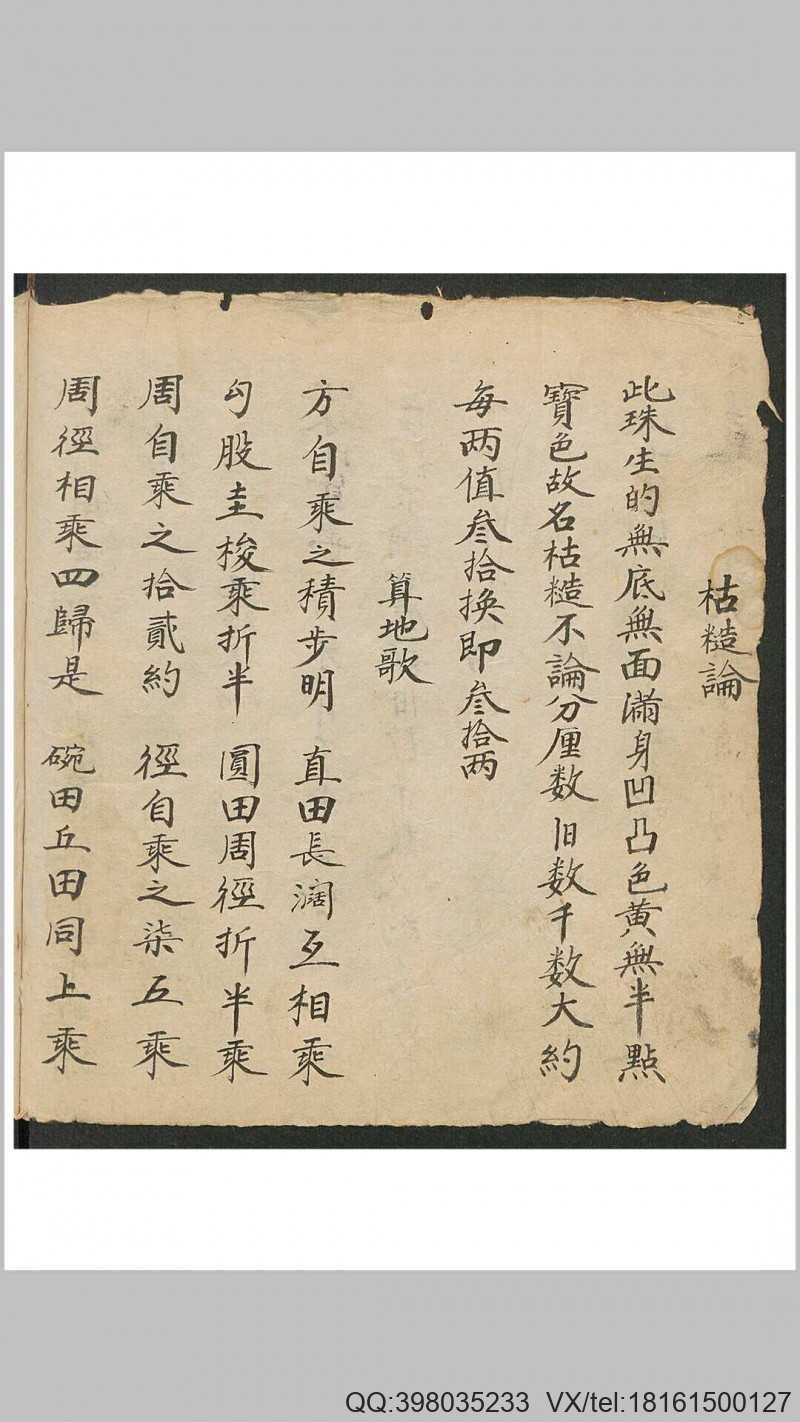 枯糙論
此珠生的無底無面滿身凹凸色黄無半點
寳色故名枯糙不論分厘数旧数千数大約
每两值叁拾换即叁拾两
算地歌
方自乘之積步明 直田長濶互相乘
勾股圭梭乘折半 圓田周徑折半乘
周自乘之拾貳約 徑自乘之柒五乘
周徑相乘四歸是 碗田丘田同上乘
QQ:398035233 VX/tel:18161500127